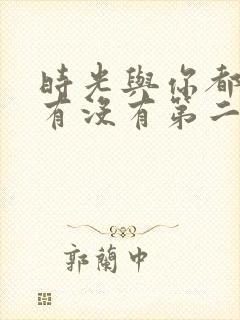 時光與你都
有沒有第二
郭蘭中